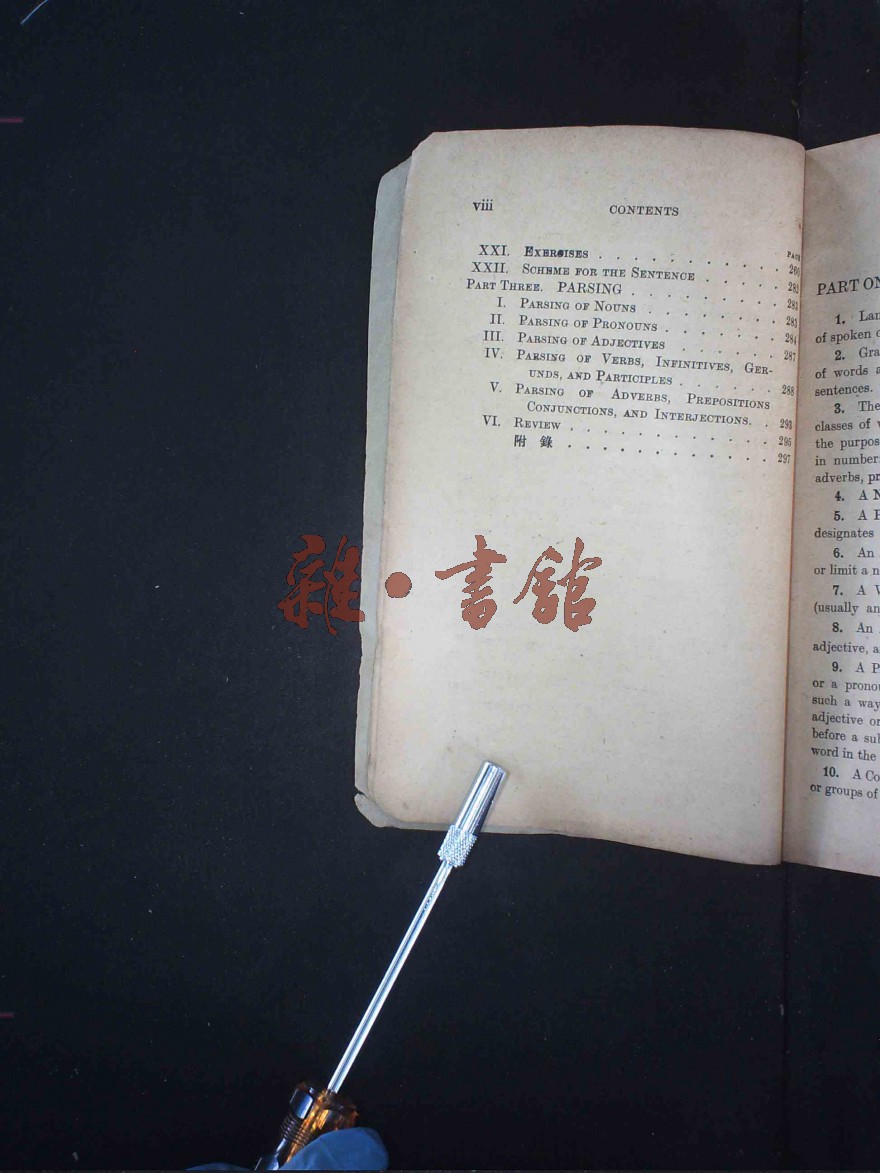 viii CONTENTS
PAGE
XXI. EXERCISES . . . . . . . . . . . 260
XXII. SCHEME FOR THE SENTENCE . . . . . . 282
PART THREE. PARSING . . . . . . . . . . 283
I. PARSING OF NOUNS . . . . . . . . . 283
II. PARSING OF PRONOUNS . . . . . . . . 284
III. PARSING OF ADJECTIVES . . . . . . . 287
IV. PARSING OF VERBS, INFINITIVES, GER-
UNDS, AND PARTICIPLES . . . . . . . 288
V. PARSING OF ADVERBS, PREPOSITIONS
CONJUNCTIONS, AND INTERJECTIONS. . 293
VI. REVIEW . . . . . . . . . . . . 295
附錄 . . . . . . . . . . . . 297
雜·書館
PART
1.
of spoken
2.
of words
sentences.
3. The
classes of
the
in number
adverbs,
4. A
5. A
designates
6. An
or limit a
7. A
(usually
8. An
adjective,
9. A
or a
such a way
adjective
before a
word in the
10. A
or groups of